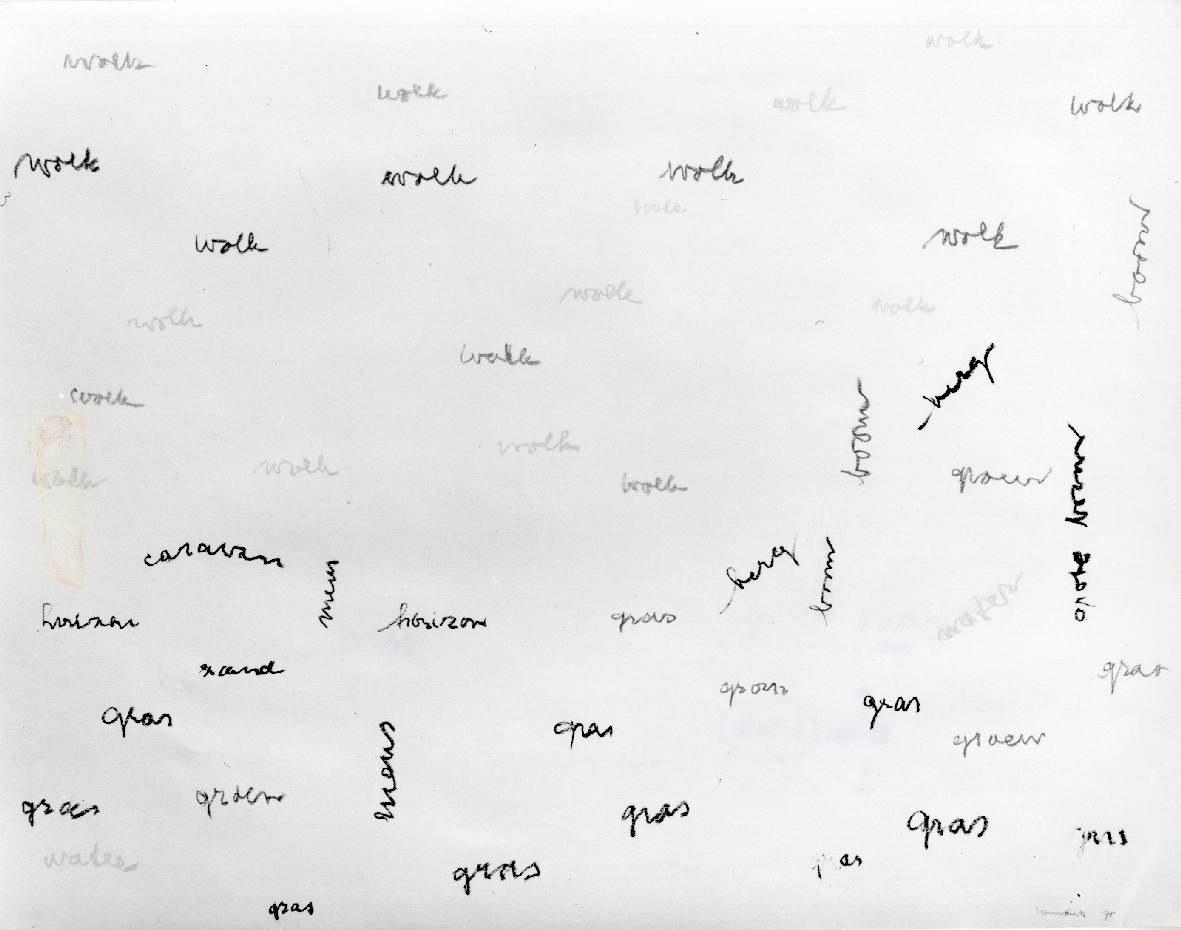 wolk
wolk
wolk
wolk
wolk
wolk
wolk
wolk
wolk
wolk
wolk
boom
wolk
wolk
wolk
wolk
wolk
berg
wolk
boom
wolk
wolk
groen
wolk
wolk
boom
caravan
berg
boom
mens
grote
horizon
horizon
gras
water
zand
gras
groen
gras
gras
gras
groen
mens
groen
gras
gras
gras
gras
water
gras
gras
gras